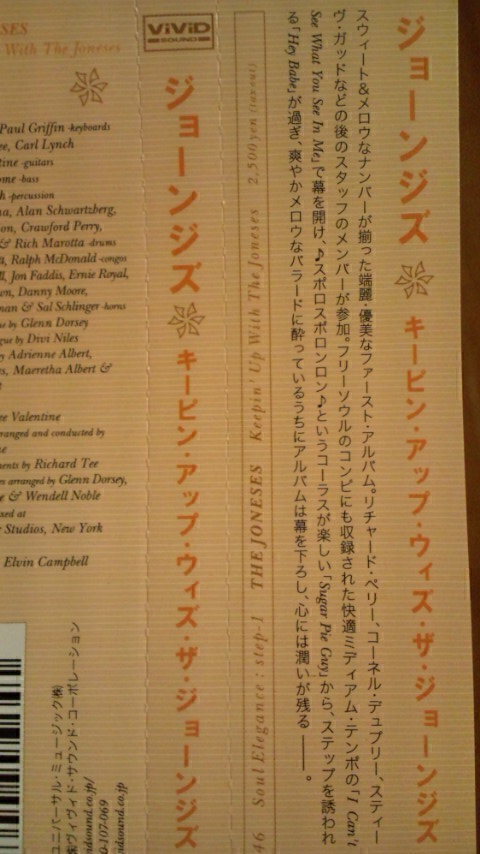 ジョーンジズ キーピン・アップ・ウィズ・ザ・ジョーンジズ
スウィート&メロウなナンバーが揃った端麗・優美なファースト・アルバム。リチャード・ペリー、コーネル・デュプリー、スティー
ヴ・ガッドなどの後のスタッフのメンバーが参加。フリーソウルのコンピにも収録された快適ミディアム・テンポの「I Can't
See What You See In Me」で幕を開け、♪スポロスポロンロン♪というコーラスが楽しい「Sugar Pie Guy」から、ステップを誘われ
る「Hey Babe」が過ぎ、爽やかメロウなバラードに酔っているうちにアルバムは幕を下ろし、心には潤いが残る――。
46 Soul Elegance : step-1 THE JONESES Keepin' Up With The Joneses 2,500yen (tax out)
ViViD
SOUND
ジョーンジズ キーピン・アップ・ウィズ・ザ・ジョーンジズ
ESES
With The Joneses
Paul Griffin -keyboards
ee, Carl Lynch
tine -guitars
ome -bass
h -percussion
na, Alan Schwartzberg,
on, Crawford Perry,
& Rich Marotta -drums
tt, Ralph McDonald -congos
ll, Jon Faddis, Ernie Royal,
wn, Danny Moore,
man & Sal Schlinger -horns
ue by Glenn Dorsey
gue by Divi Niles
by Adrienne Albert,
es, Maeretha Albert &
re Valentine
rranged and conducted by
ments by Richard Tee
es arranged by Glenn Dorsey,
e & Wendell Noble
xed at
r Studios, New York
Elvin Campbell
ユニバーサル・ミュージック㈱
㈱ヴィヴィド・サウンド・コーポレーション
idsound.co.jp/
0-107-069
idsound.co.jp